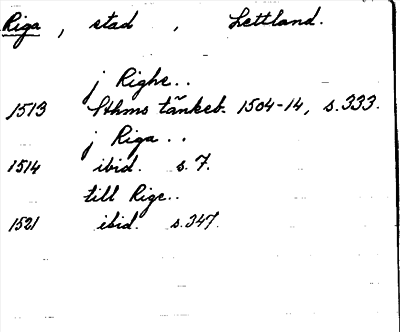 Riga, stad, Lettland.
j Righe..
1513 Sthms tänkeb. 1504-14, s.333.
j Riga..
1514 ibid. s.7.
till Rige..
1521 ibid. s.347.